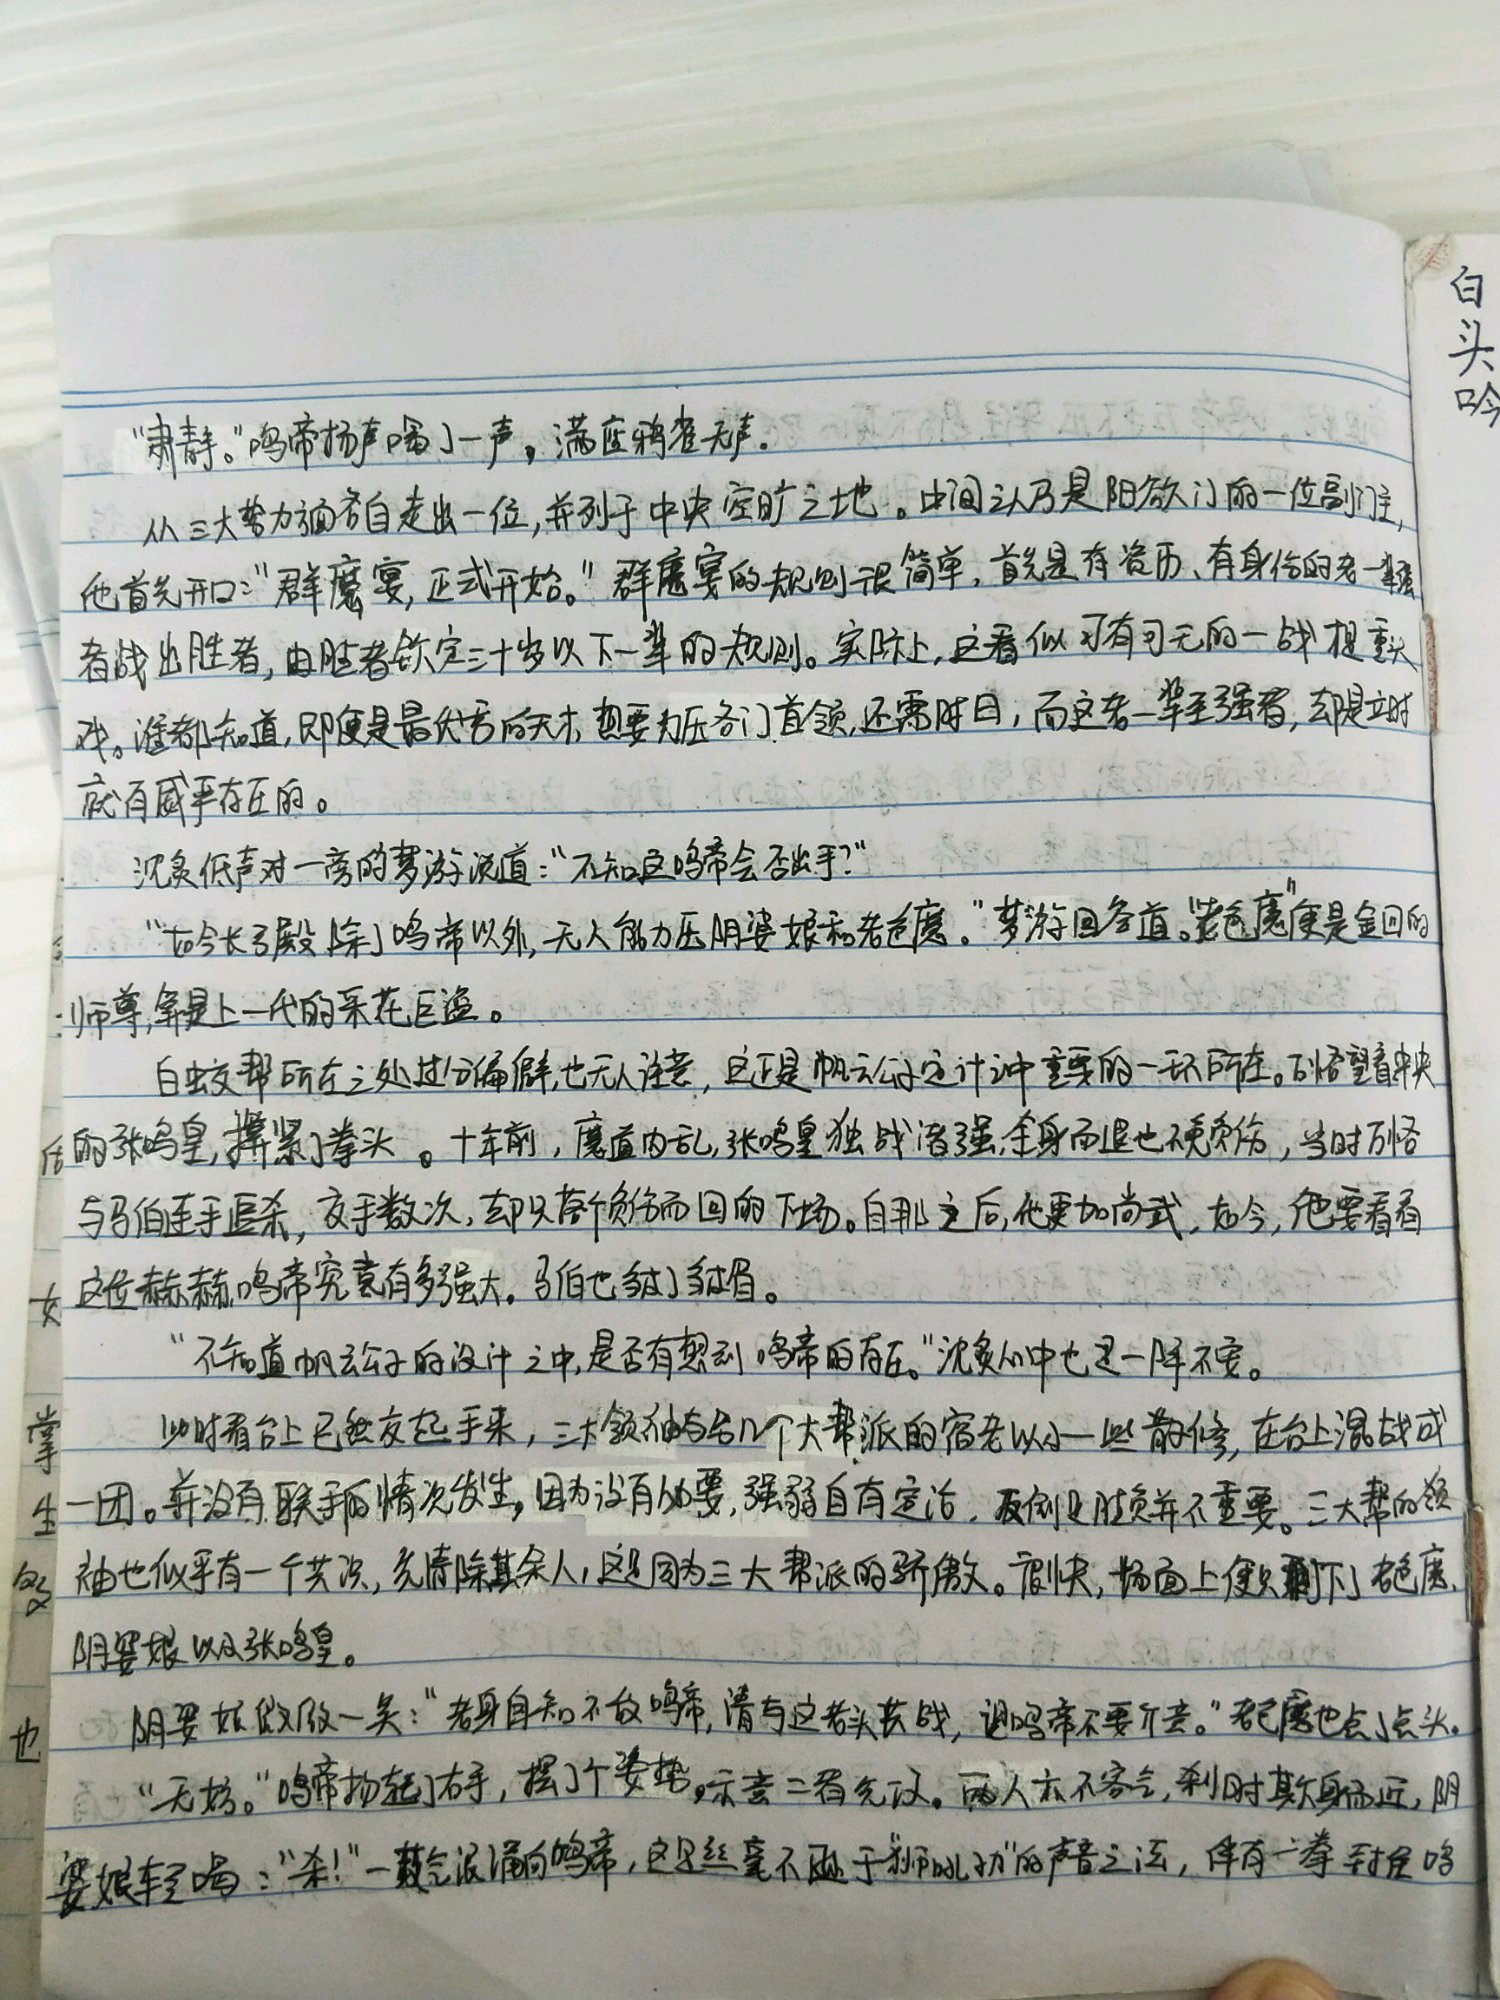 “肃静。”鸣帝扬声喝了一声，满座鸦雀无声.
从三大势力方面各自走出一位，并列于中央空旷之地。中间之人乃是阴欲门的一位副门主，
他首先开口：“群魔宴，正式开始。”群魔宴的规则很简单，首先是有资历、有身份的老一辈强
者战出胜者，由胜者钦定三十岁以下一辈的规则。实际上，这看似可有可无的一战挺重头
戏。谁都知道，即便是最优秀的天才，想要力压各门首领，还需时日，而这老一辈至强者，却是立时
就有威严存在的。
沈炙低声对一旁的梦游说道：“不知这鸣帝会否出手？”
“如今长了殿除了鸣帝以外，无人能力压阴婆娘和老色魔。”梦游回答道。“老色魔”便是金回的
师尊，算是上一代的采花巨盗。
白蛟帮所在之处过分偏僻，也无人注意，这正是帆云公子定计之中重要的一环所在。万恪望着中央
的张鸣皇，攥紧了拳头。十年前，魔道内乱，张鸣皇独战诸强，全身而退也不免负伤，当时万恪
与马伯连手追杀，交手数次，却只落个负伤而回的下场。自那之后，他更加尚武，如今，他要看看
这位赫赫鸣帝究竟有多强大。马伯也皱了皱眉。
“不知道帆云公子的设计之中，是否有想到鸣帝的存在。”沈炙心中也是一阵不安。
此时看台上已经交起手来，三大领袖与各几个大帮派的宿老以及一些散修，在台上混战成
一团。并没有联手的情况发生，因为没有必要，强弱自有定论，反倒是胜负并不重要。三大帮的领
袖也似乎有一个共识，先清除其余人，这是因为三大帮派的骄傲。很快，场面上便只剩下了老色魔、
阴婆娘以及张鸣皇。
阴婆娘微微一笑：“老身自知不敌鸣帝，请与这老头共战，望鸣帝不要介意。”老色魔也点了点头.
“无妨。”鸣帝扬起了右手，摆了个姿势，示意二者先攻。两人亦不客气，刹时欺身而近，阴
婆娘轻喝：“杀！”一股气浪涌向鸣帝，这是丝毫不逊于“狮吼功”的声音之法，伴有一拳轰向鸣
白头吟
女
掌
生
也